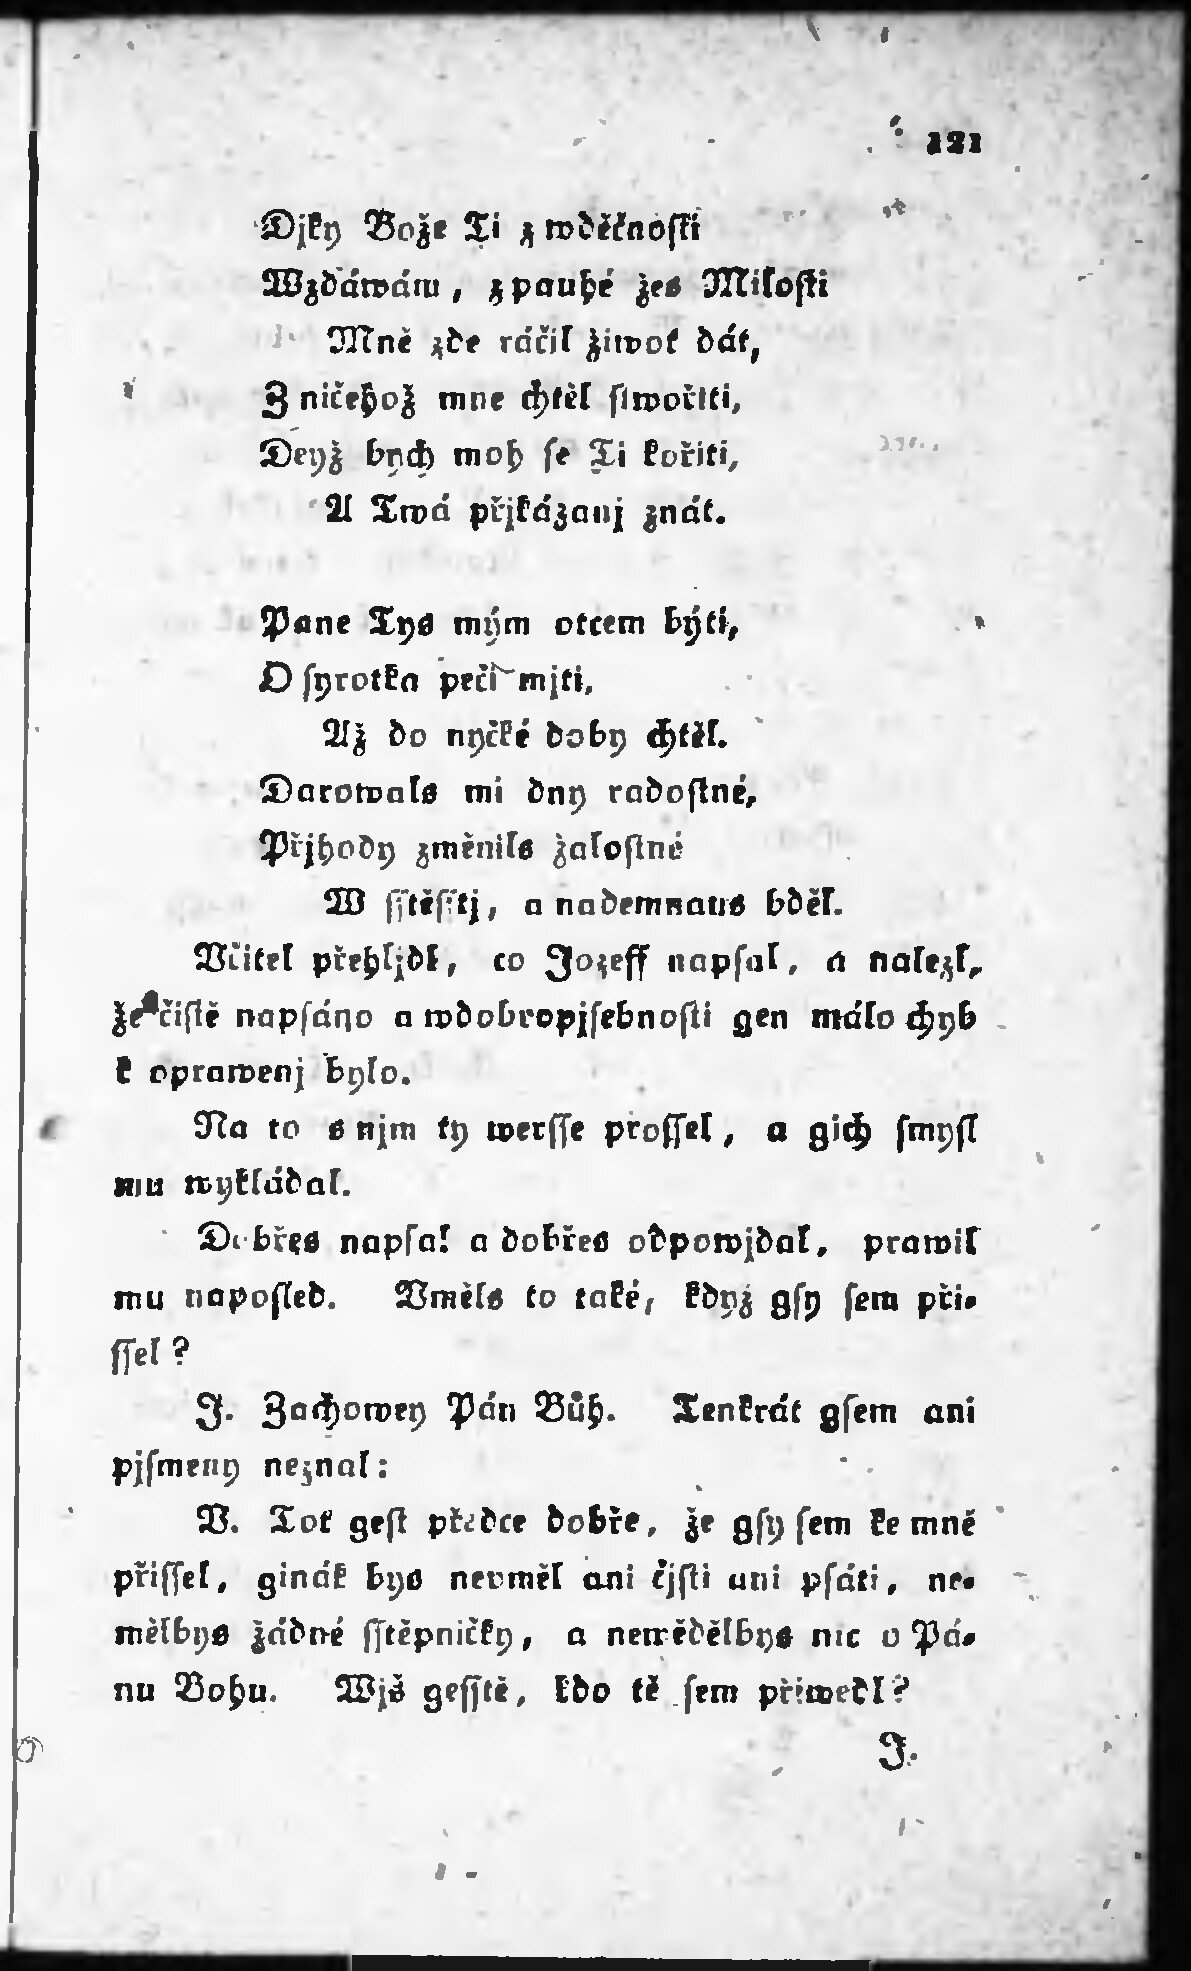 121
Djky Bože Ti z wděčnoſti
Wzdáwám, z pauhé žes Miloſti
Mně zde ráčil žiwot dát,
Z ničehož mne chtěl ſtwořiti,
Deyž bych moh ſe Ti kořiti,
A Twá přjkázanj znát.
Pane Tys mým otcem býti,
O ſyrotka peči mjti,
Až do nyčké doby chtěl.
Darowals mi dny radoſtné,
Přjhody změnils žaloſtné
W ſſtěſſtj, a nademnaus bděl.
Včitel přehljdl, co Jozeff napſal, a nalezl,
že čiſtě napſáno a wdobropjſebnoſti gen málo chyb
k oprawenj bylo.
Na to s njm ty werſſe proſſel, a gich ſmyſl
mu wykládal.
Dobřes napſal a dobřes odpowjdal, prawil
mu napoſled. Vměls to také, když gſy ſem při-
ſſel?
J. Zachowey Pán Bůh. Tenkrát gſem ani
pjſmeny neznal:
V. Toť geſt předce dobře, že gſy ſem ke mně
přiſſel, ginák bys nevměl ani čjſti ani pſáti, ne-
mělbys žádné ſſtěpničky, a newědělbys nic o Pá-
nu Bohu. Wjš geſſtě, kdo tě ſem přiwedl?
J.